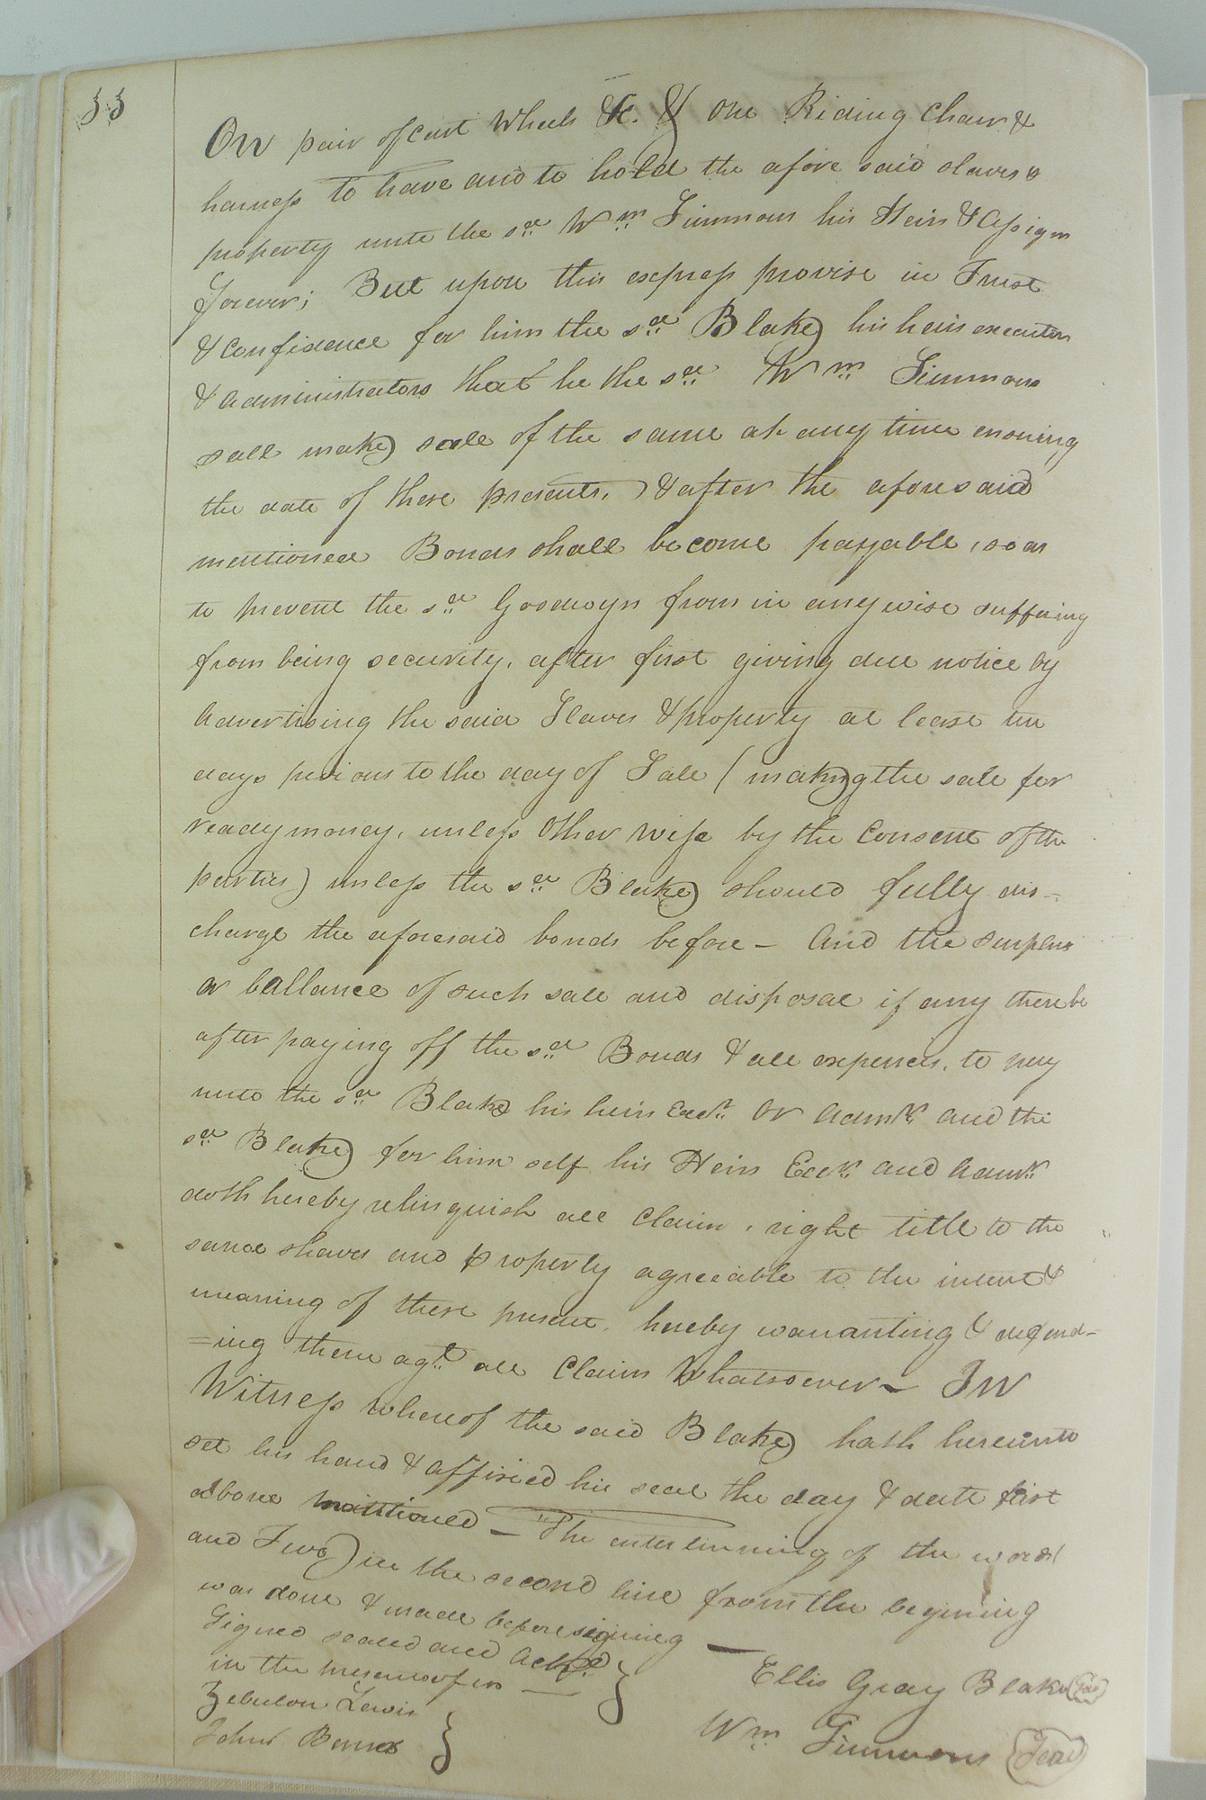 33
One pair of cart Wheels &c. & one Riding Chair &
harness To have and to hold the afore said slaves &
property unto the sd Wm Simmons his Heirs & Assigns
Forever; But upon this express provise in Trust
& Confidence for him the sd Blake his heirs executors
& administrators that he the sd Wm Simmons
sall make sale of the same at any time ensuing
the date of these presents, & after the aforesaid
mentioned Bonds shall become payable, so as
to prevent the sd Goodwyn from in any wise suffering
from being security, after first giving due notice by
advertising the said Slaves & property at least ten
days previous to the day of Sale (making the sale for
ready money, unless Other wise by the Consent of the
parties) unless the sd Blake should fully dis-
charge the aforesaid bonds before - And the surplus
or ballance of such sale and disposal if any there be
after paying off the sd Bonds & all expences, to pay
unto the sd Blake his heirs Exrs Or Admrs and the
sd Blake for him self his Heirs Exrs and Admrs
doth hereby relinquish all Claim, right title to the
same slaves and property agreeable to the intent &
meaning of these present, hereby warranting & defend-
=ing them agst all Claims Whatsoever - In
Witness whereof the said Blake hath hereunto
set his hand & affixed his seal the day & date first
above mentioned - The enterlinning of the words
and Two) in the second line from the begining
was done & made before signing -
Signed sealed and Ackd
in the presence of us
Zebulon Lewis
John
Ellis Gray Blake Seal
Wm Simmons Seal